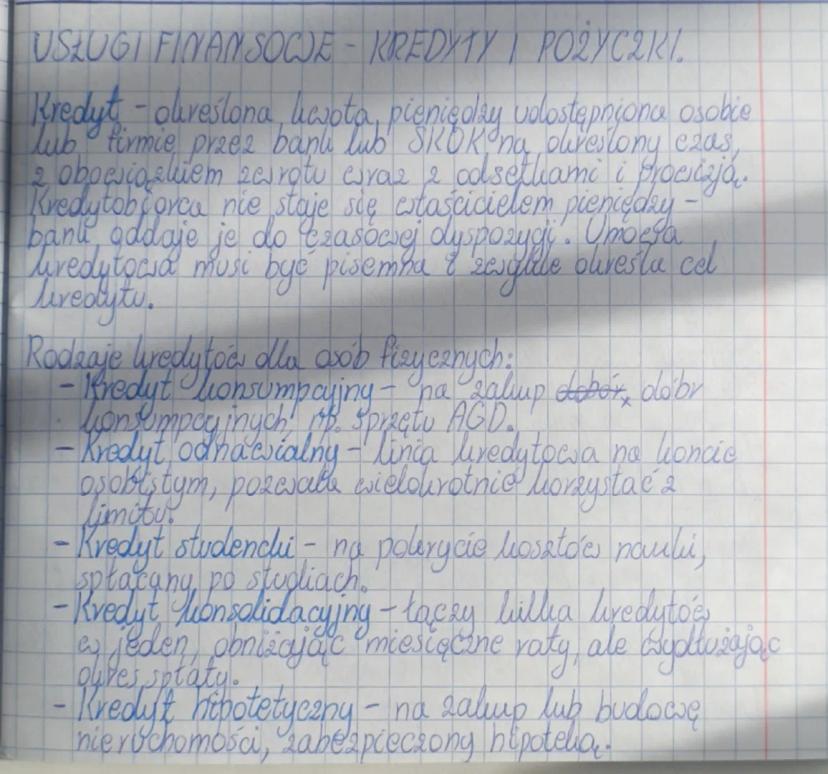 USŁUGI FINANSOWE - KREDYTY I POŻYCZKI.
Kredyt - określona kwota pieniędzy udostępniona osobie
lub firmie przez bank lub SKOK na określony czas,
z obowiązkiem zwrotu wraz z odsetkami i prowizją.
Kredytobiorca nie staje się właścicielem pieniędzy -
bank oddaje je do czasowej dyspozycji. Umowa
kredytowa musi być pisemna i zwykle określa cel
kredytu.
Rodzaje kredytów dla osób fizycznych:
- Kredyt konsumpcyjny - na zakup dobór dóbr
konsumpcyjnych np. sprzętu AGD.
- Kredyt odnawialny - linia kredytowa na koncie
osobistym, pozwala wielokrotnie korzystać z
limitu.
- Kredyt studencki - na pokrycie kosztów nauki,
spłacany po studiach.
- Kredyt konsolidacyjny - łączy kilka kredytów
w jeden, obniżając miesięczne raty, ale wydłużając
okres spłaty.
- Kredyt hipotetyczny - na zakup lub budowę
nieruchomości, zabezpieczony hipoteką.